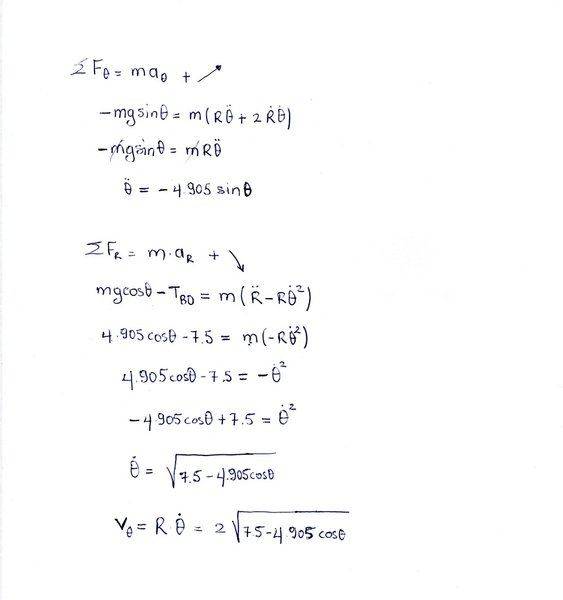 ΣF_θ = ma_θ + ↗
-mg sinθ = m(Rθ̈ + 2Ṙθ̇)
-mg sinθ = mRθ̈
θ̈ = -4.905 sinθ
ΣF_R = m·a_R + ↘
mg cosθ - T_BD = m(R̈ - Rθ̇²)
4.905 cosθ - 7.5 = m(-Rθ̇²)
4.905 cosθ - 7.5 = -θ̇²
-4.905 cosθ + 7.5 = θ̇²
θ̇ = √(7.5 - 4.905 cosθ)
V_θ = R·θ̇ = 2√(7.5 - 4.905 cosθ)